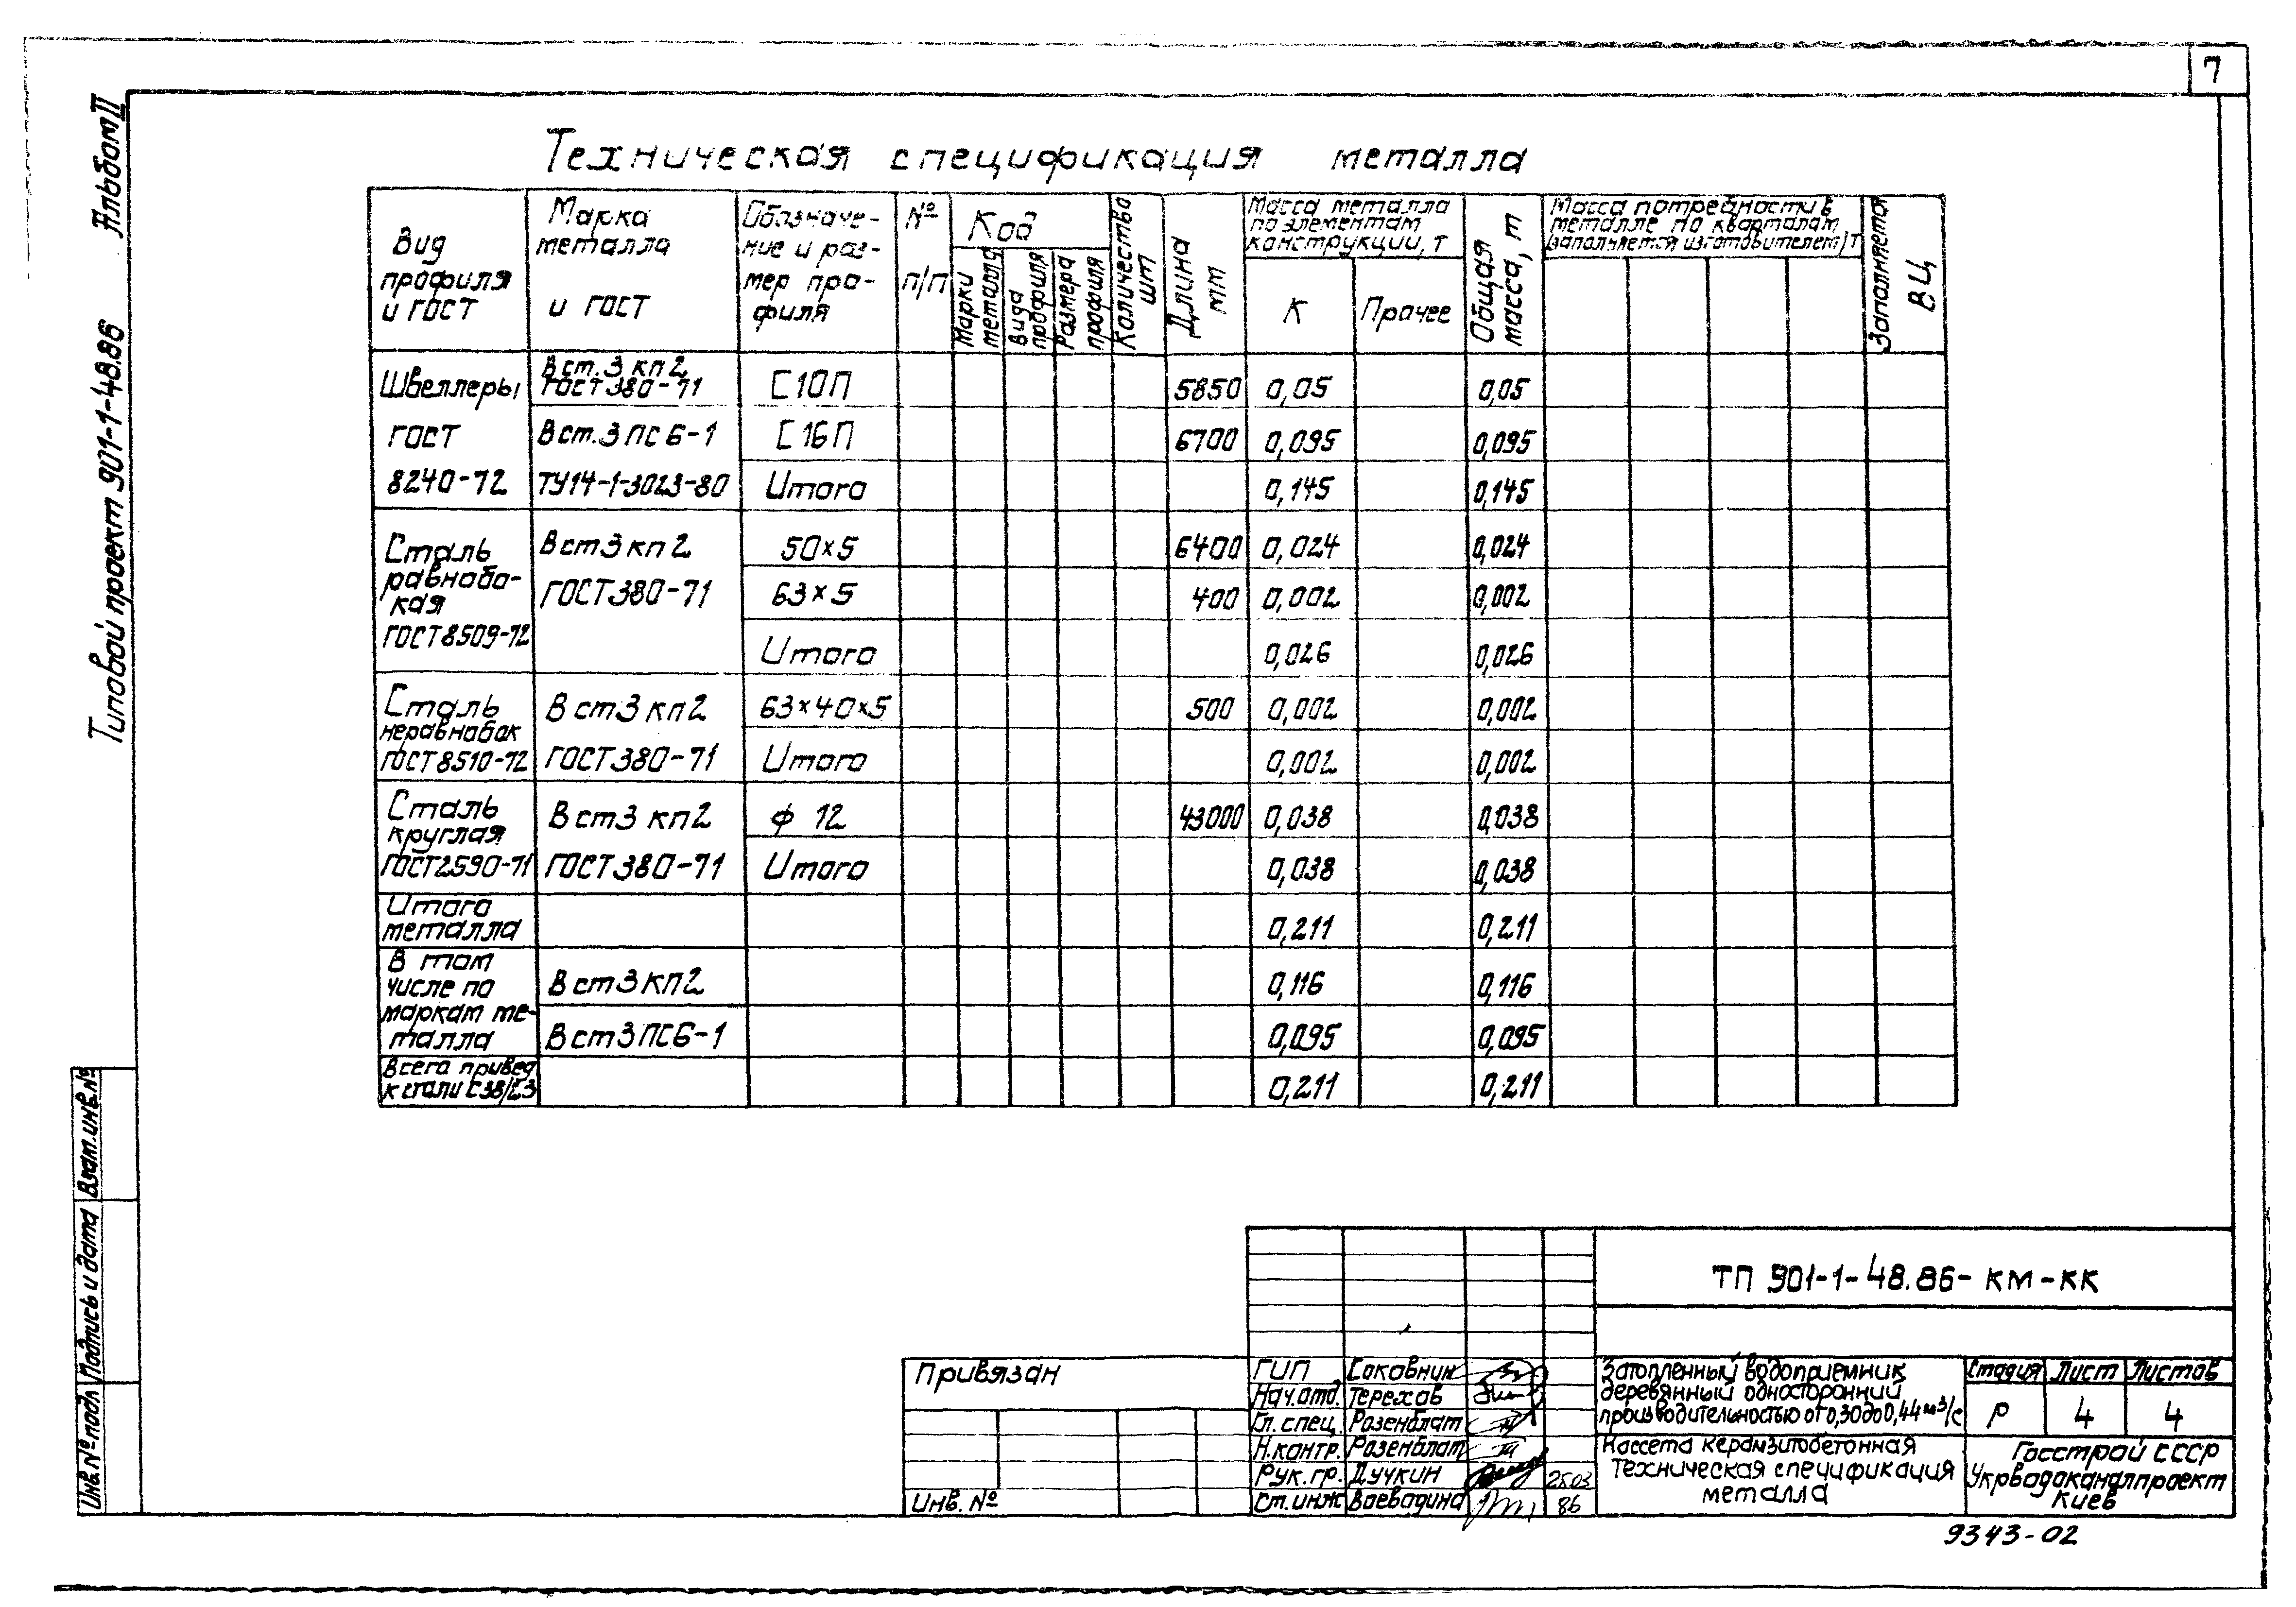 7
Альбом II
Типовой проект 901-1-48.86
Техническая спецификация металла
Вид профиля и ГОСТ
Марка металла и ГОСТ
Обозначе-ние и раз-мер про-филя
№ п/п
Код
Марки металла
Вида профиля
Размера профиля
Количество шт
Длина мм
Масса металла по элементам конструкции, т
К
Прочее
Общая масса, т
Масса потребности в металле по кварталам (заполняется изготовителем) т
Заполняется ВЦ
Швеллеры
ГОСТ
8240-72
В ст. 3 кп 2
ГОСТ 380-71
[ 10П
5850 0,05 0,05
В ст. 3 ПС 6-1
ТУ14-1-3023-80
[ 16 П
6700 0,095 0,095
Итого 0,145 0,145
Сталь
равнобо-
кая
ГОСТ 8509-72
В ст 3 кп 2
ГОСТ 380-71
50×5 6400 0,024 0,024
63×5 400 0,002 0,002
Итого 0,026 0,026
Сталь
неравнобок
ГОСТ 8510-72
В ст 3 кп 2
ГОСТ 380-71
63×40×5 500 0,002 0,002
Итого 0,002 0,002
Сталь
круглая
ГОСТ 2590-71
В ст 3 кп 2
ГОСТ 380-71
ф 12 43000 0,038 0,038
Итого 0,038 0,038
Итого
металла
0,211 0,211
В том
числе по
маркам ме-
талла
В ст 3 КП 2 0,116 0,116
В ст 3 ПС 6-1 0,095 0,095
Всего привед.
к стали С 38/23
0,211 0,211
Взам.инв.№
Подпись и дата
Инв.№ подл
Привязан
Инв. №
ТП 901-1-48.86-КМ-КК
ГИП Соковнин
Нач.отд. Терехов
Гл.спец. Розенблат
Н.контр. Розенблат
Рук.гр. Дучкин 25.03
Ст.инж Воеводина 86
Затопленный водоприемник
деревянный односторонний
производительностью от 0,30 до 0,44 м3/с
Стадия Лист Листов
Р 4 4
Кассета керамзитобетонная
Техническая спецификация
металла
Госстрой СССР
Укрводоканалпроект
Киев
9343-02